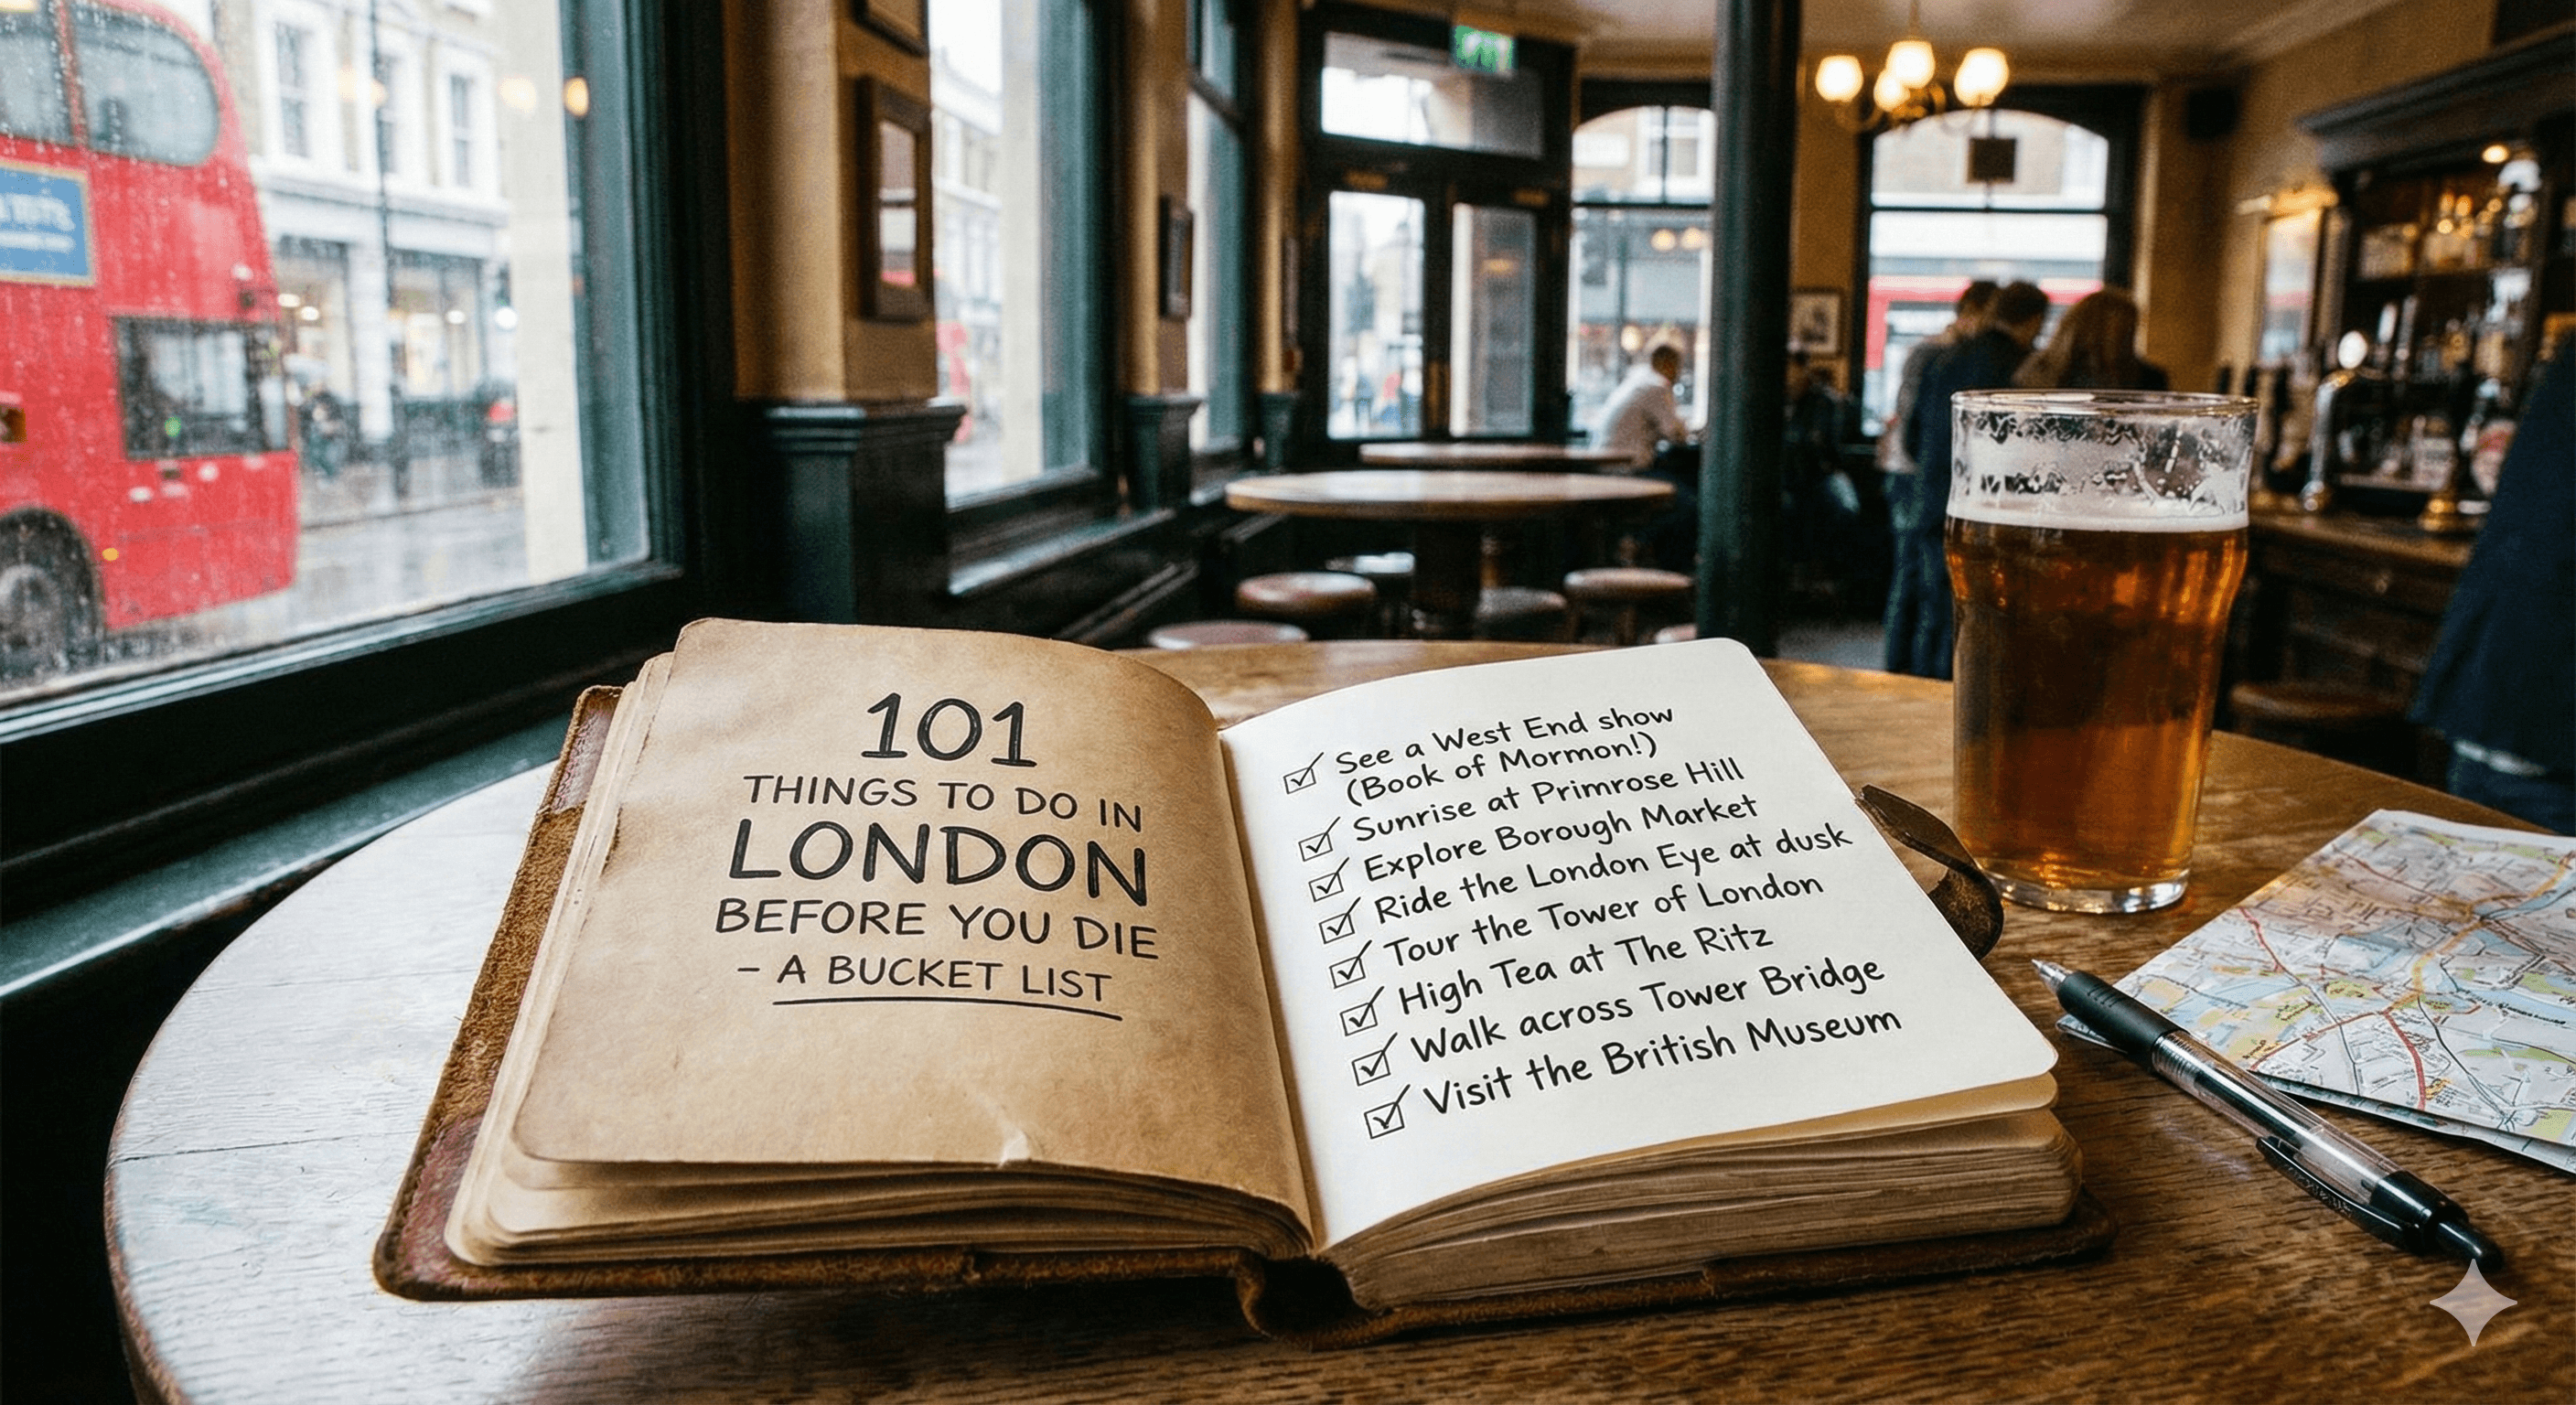 101
THINGS TO DO IN
LONDON
BEFORE YOU DIE
- A BUCKET LIST
See a West End show
(Book of Mormon!)
Sunrise at Primrose Hill
Explore Borough Market
Ride the London Eye at dusk
Tour the Tower of London
High Tea at The Ritz
Walk across Tower Bridge
Visit the British Museum